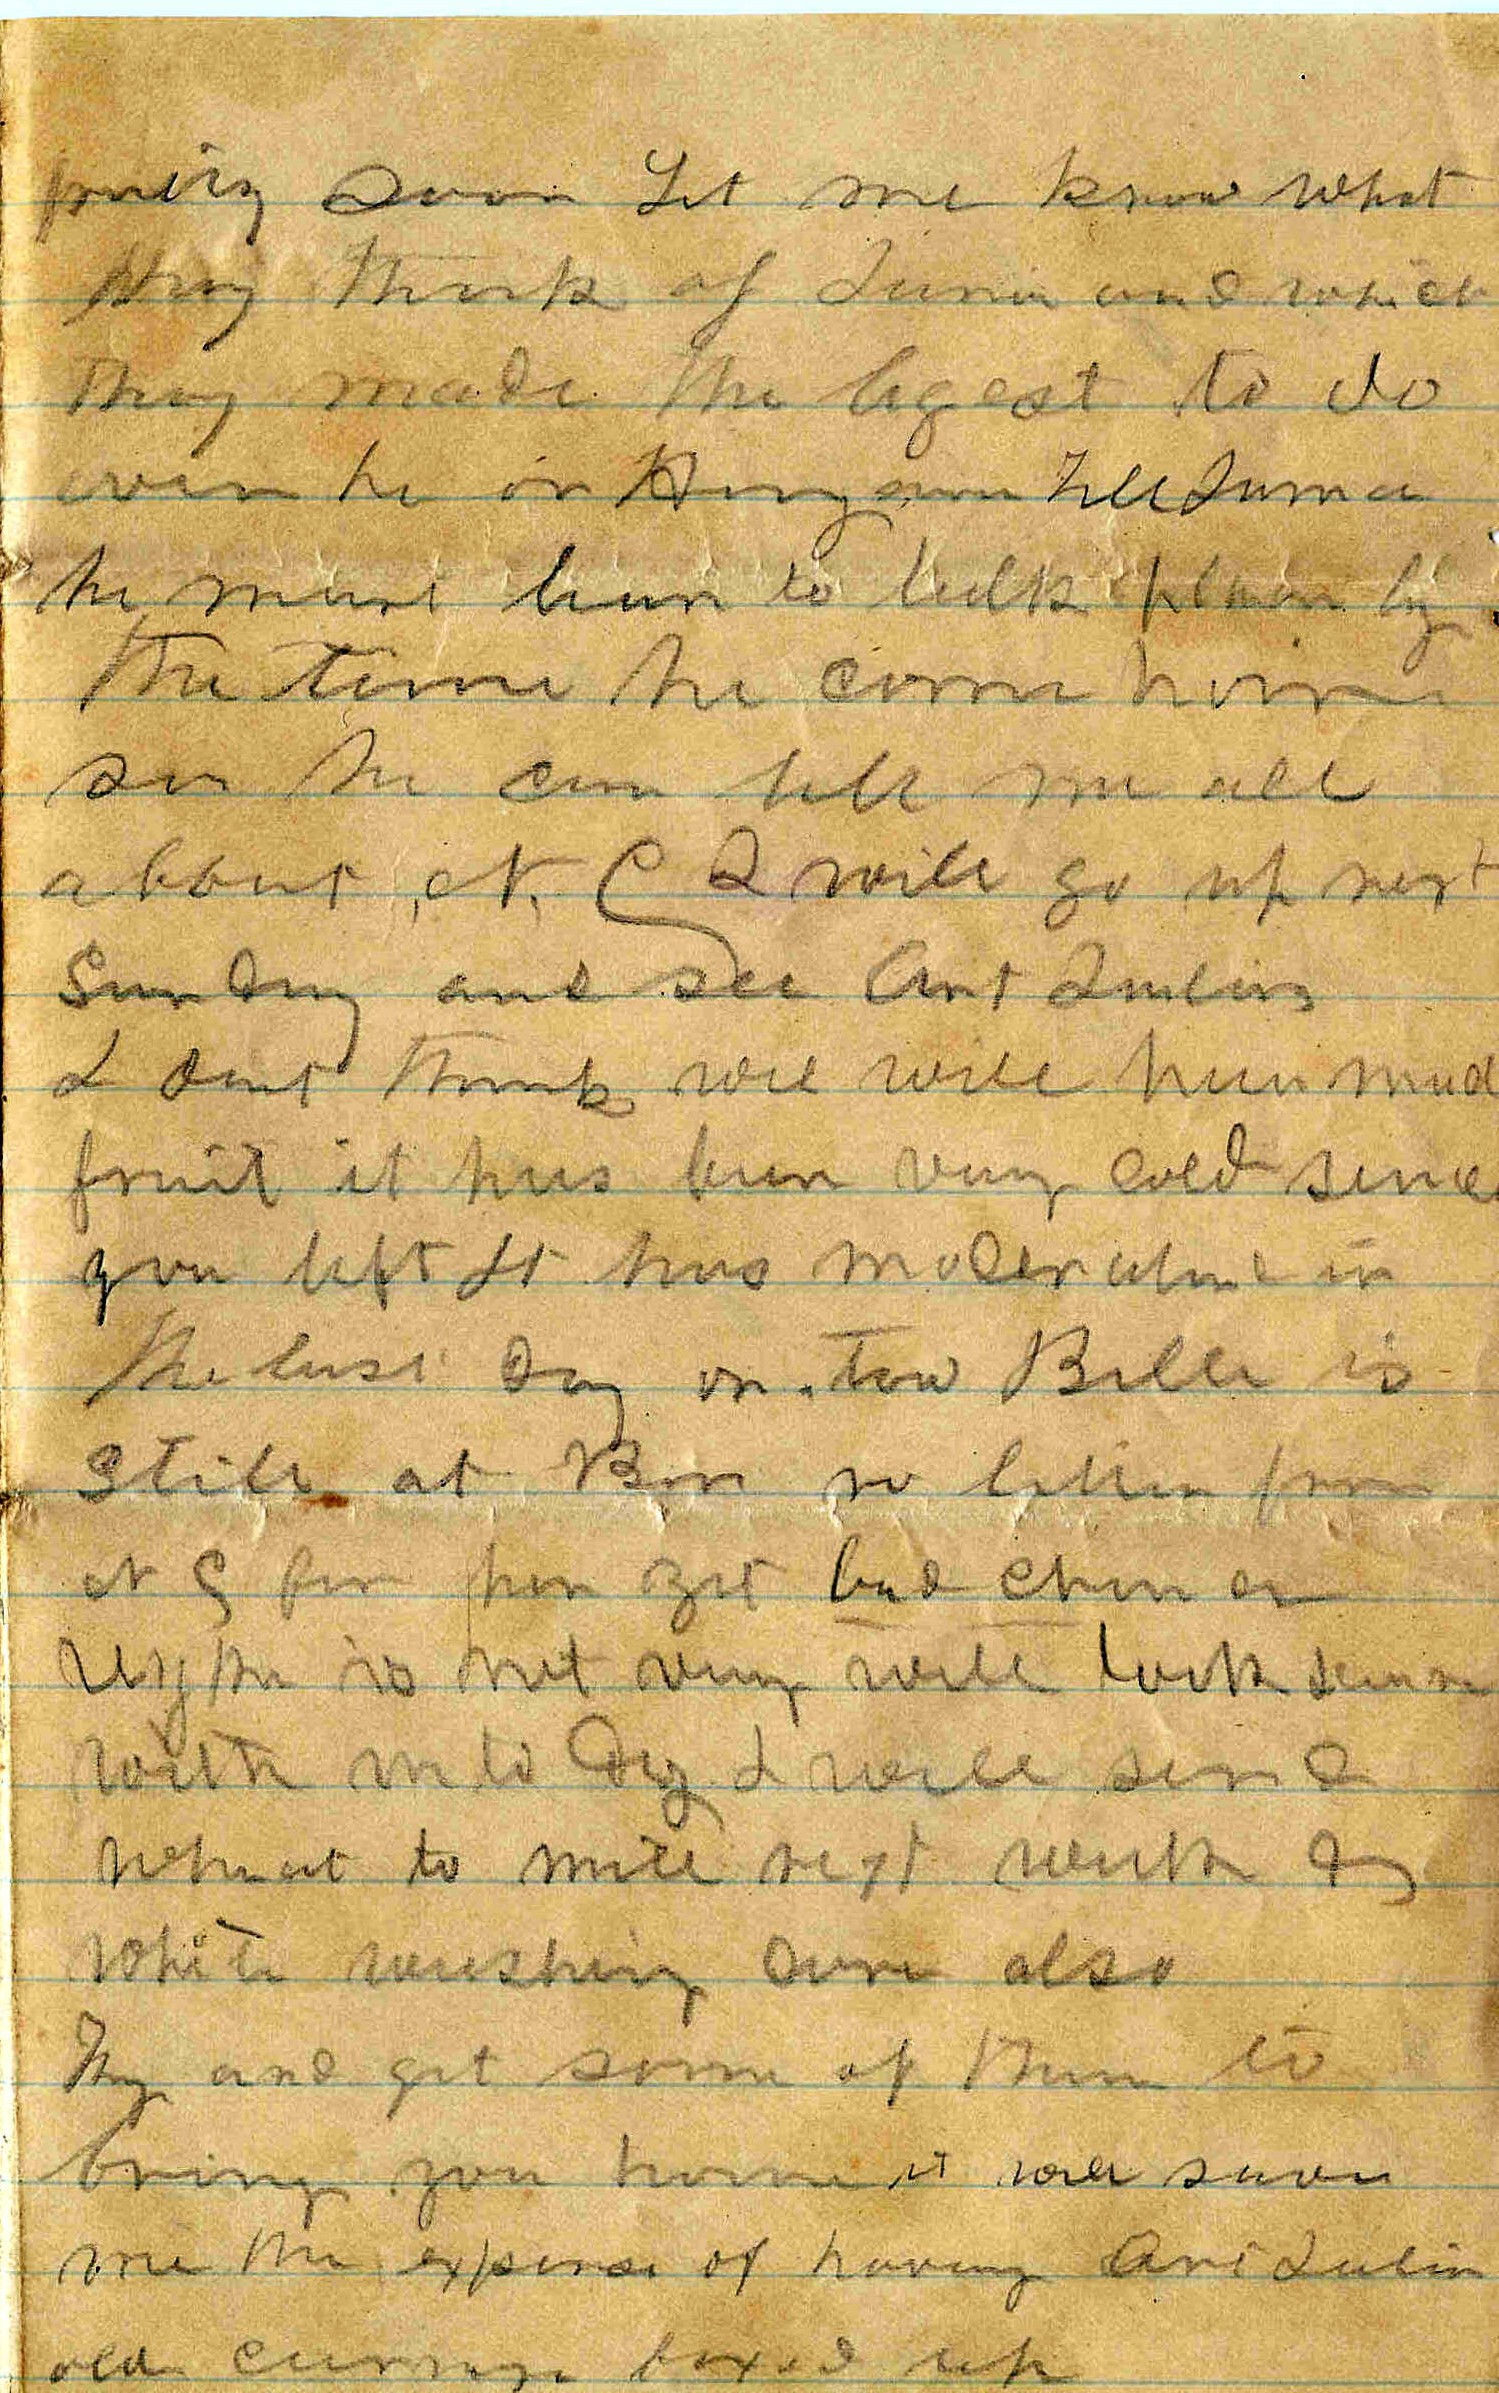 pretty soon Let me know what
they think of Junia and which
They made the bigest to do
over he or Tell Junia
he must learn to talk plain by
the time he come home
so he can tell me all
about N. C I will go up next
Sunday and see Ant Julia
I dont think wee will have much
fruit it has been very cold since
you left It has moderated in
the last day or tow Belle is
still at no letter from
N C for her yet bad chance
is not very well took
with me to Day I will send
wheat to mill next week
white washing done also
Try and get some of them to
bring you home it will save
me the expense of having Ant Julia
old carrage boxed up